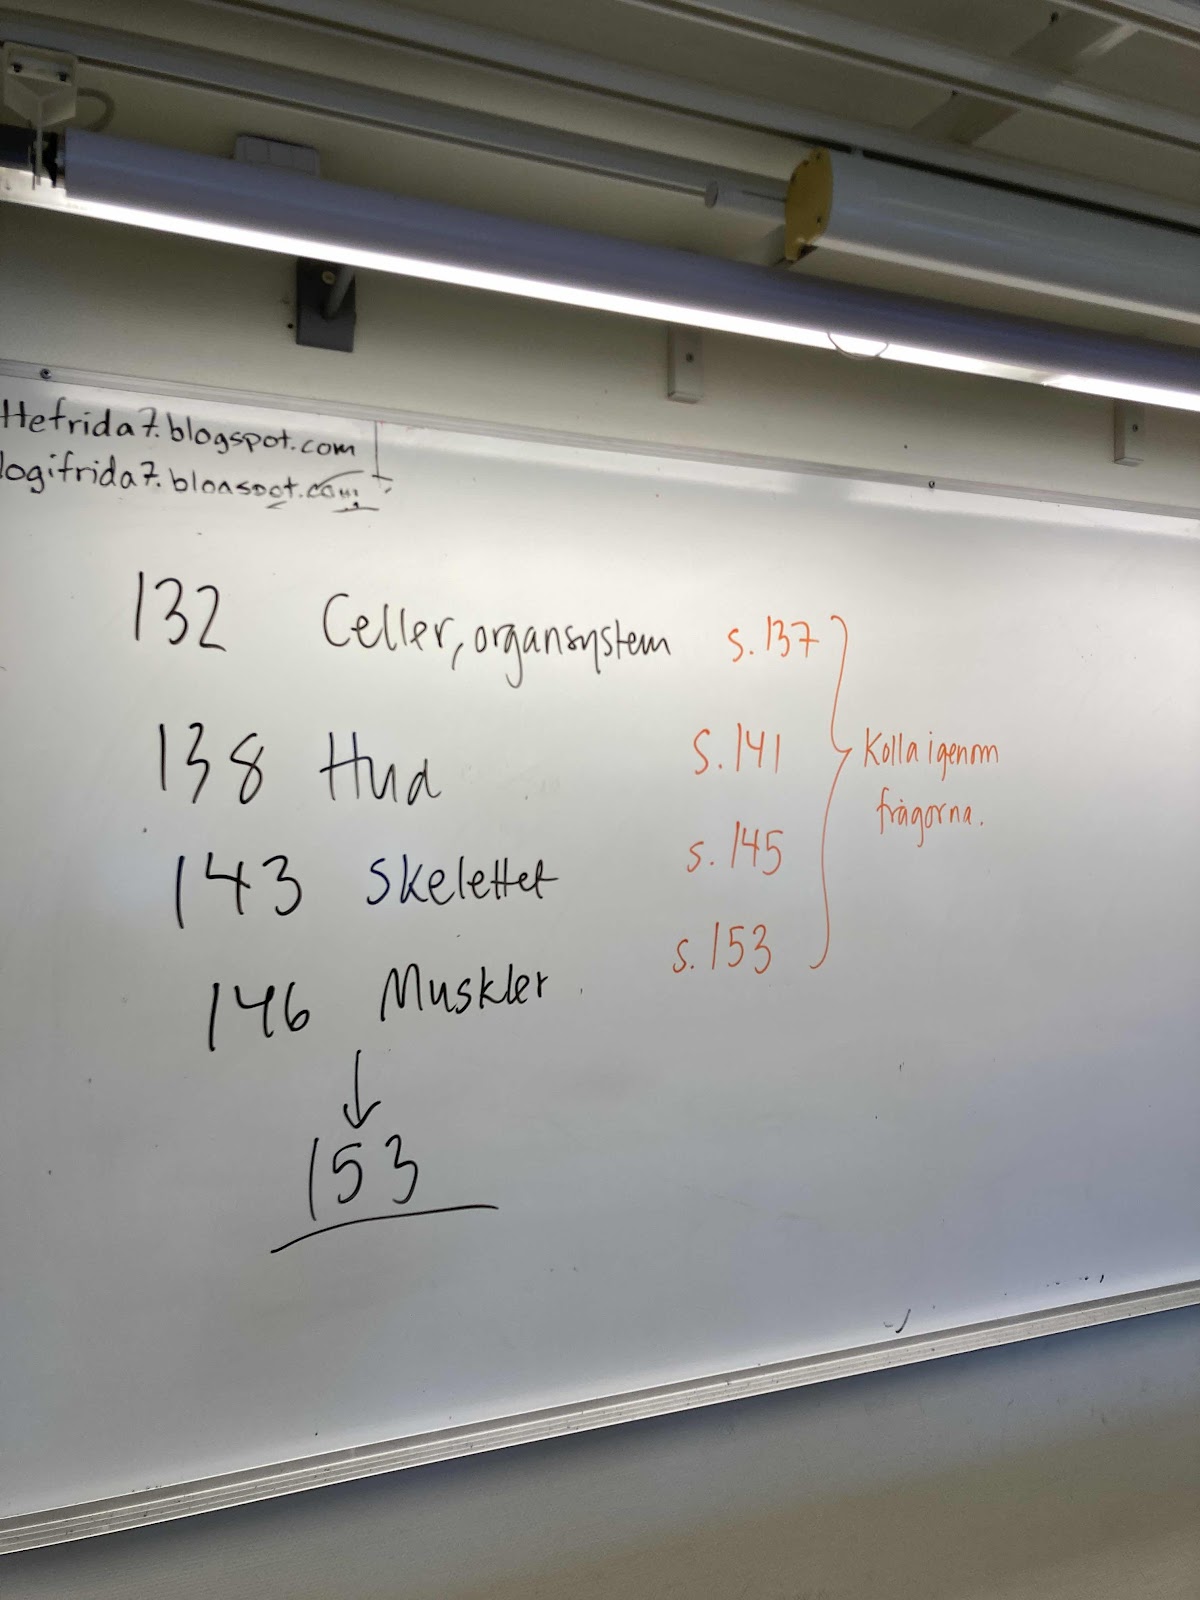 Hefrida7.blogspot.com
logifrida7.blogspot.com
132 Celler, organsystem s. 137
138 Hud s. 141
Kolla igenom
frågorna.
143 Skelettet s. 145
146 Muskler s. 153
153